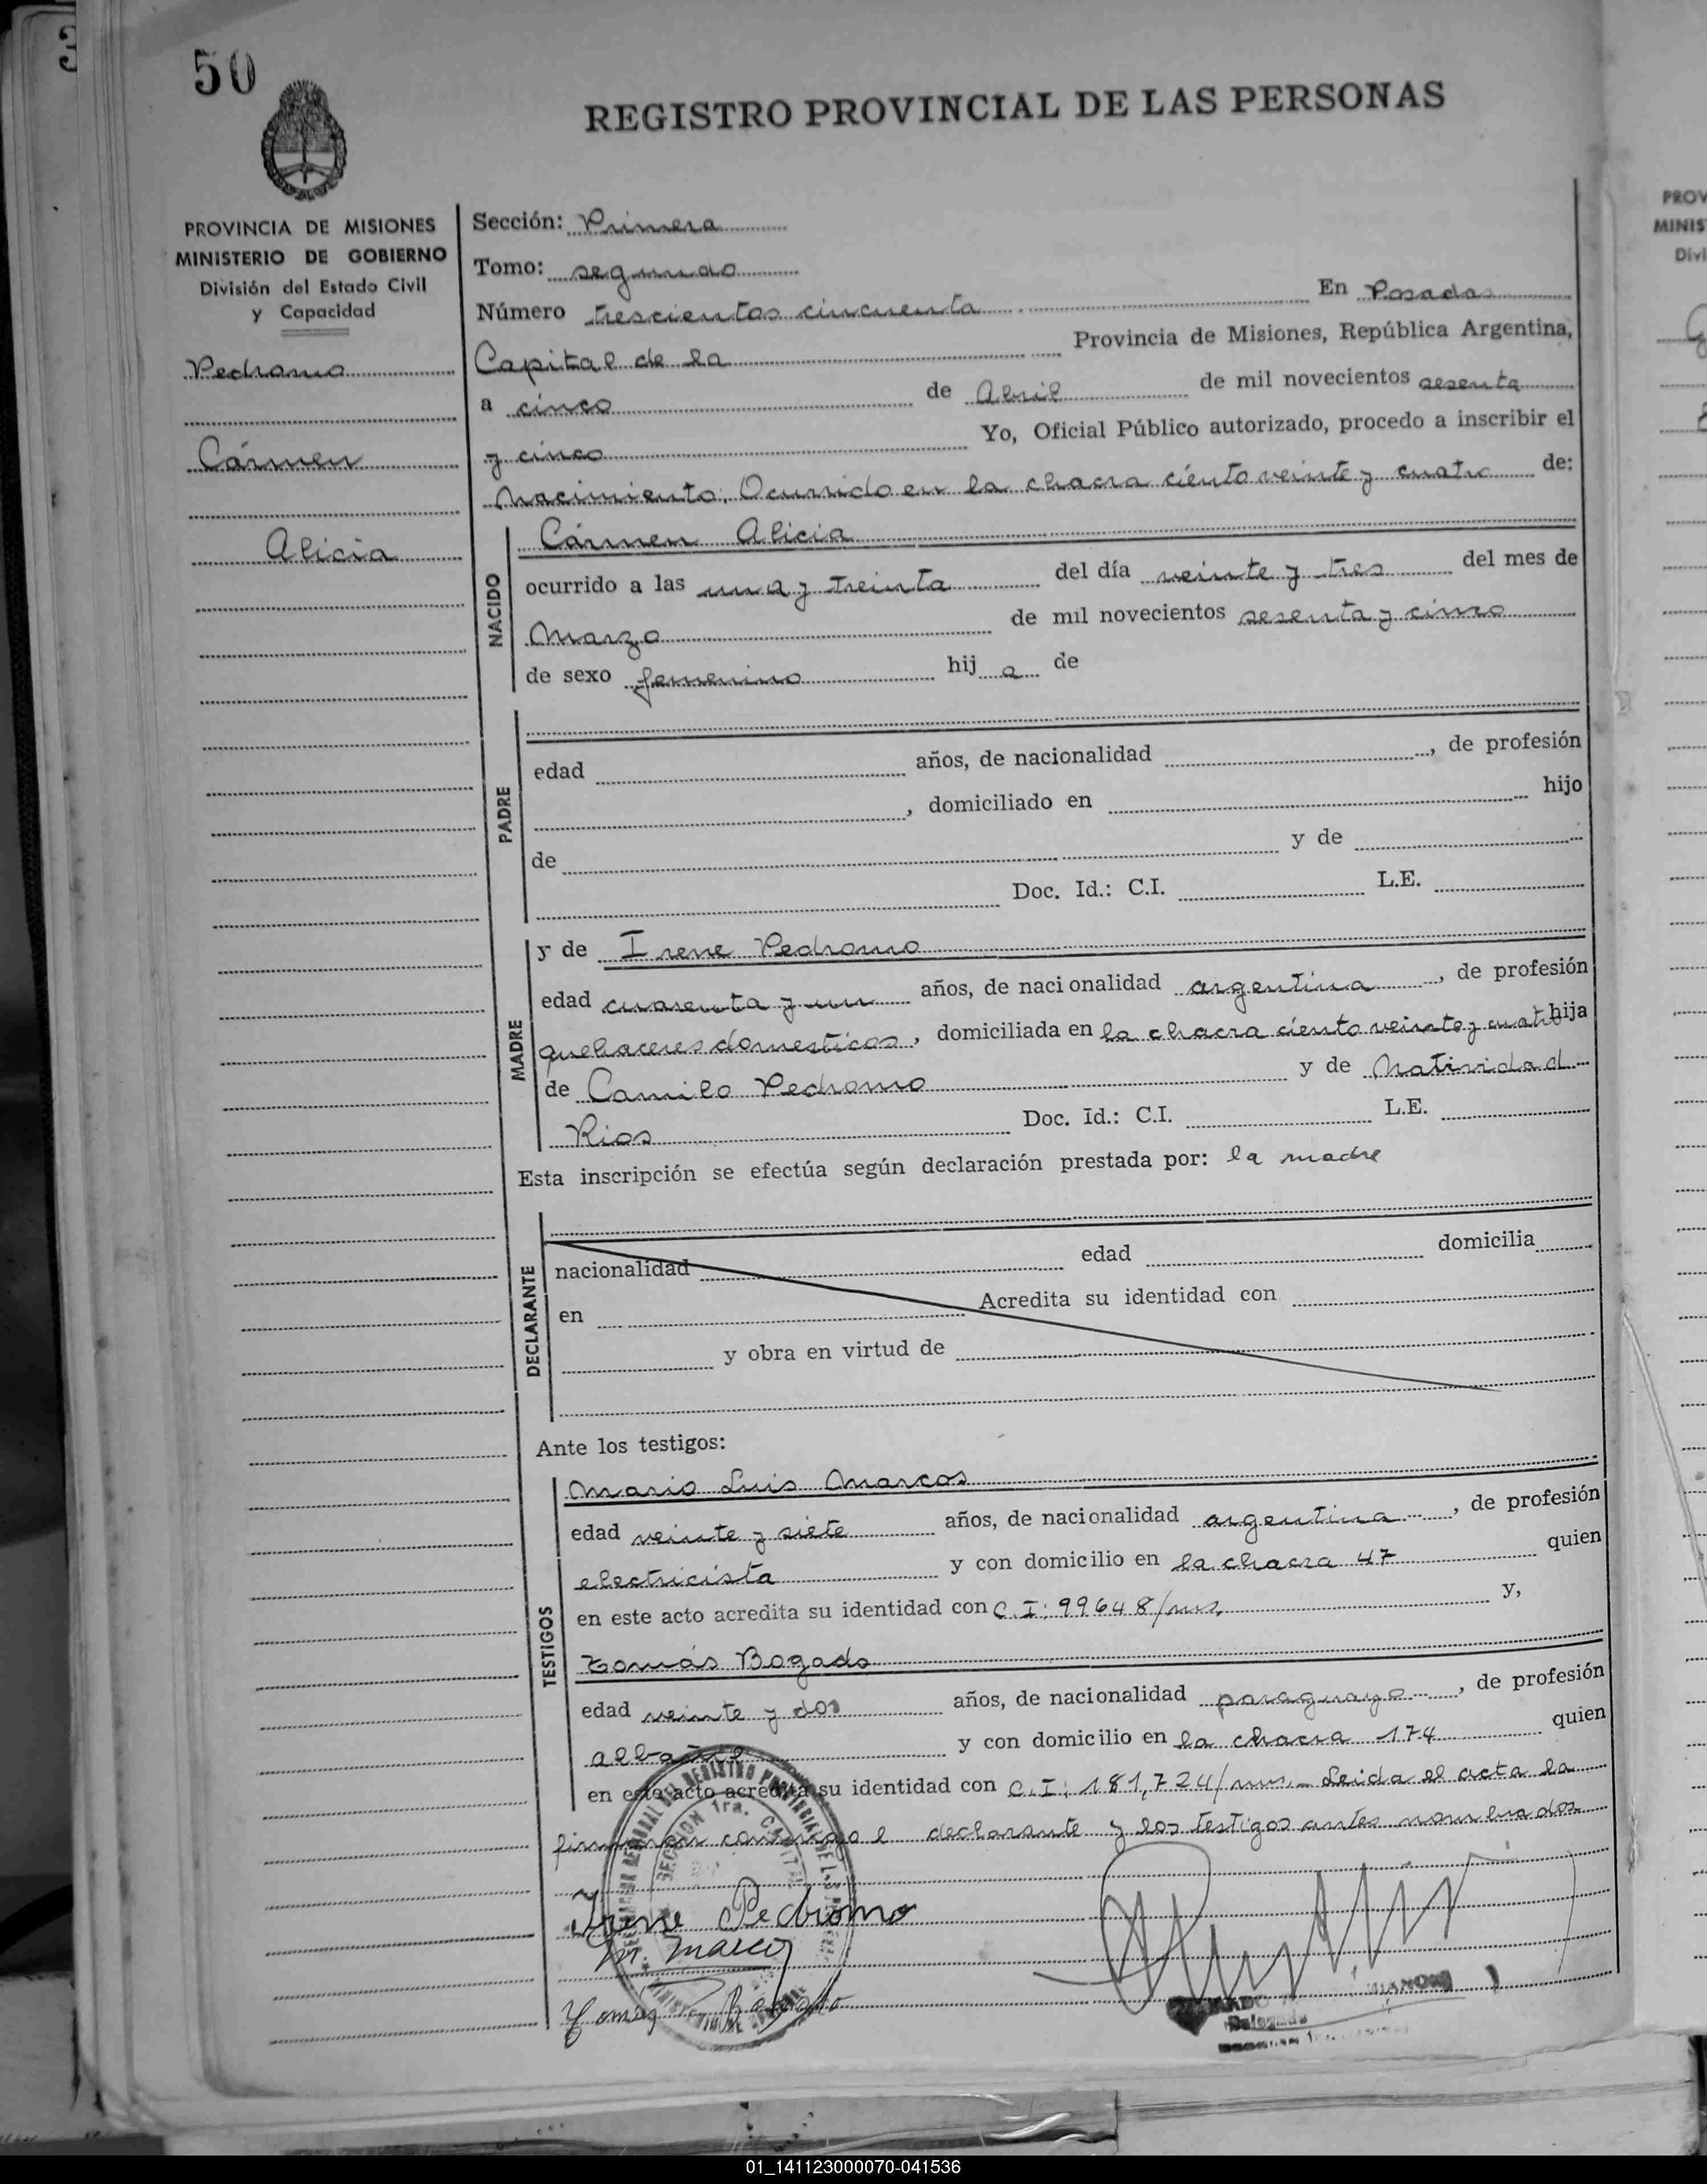 50
REGISTRO PROVINCIAL DE LAS PERSONAS
PROVINCIA DE MISIONES
MINISTERIO DE GOBIERNO
División del Estado Civil
y Capacidad
Pedromo
Cármen
Alicia
Sección: Primera
Tomo: segundo
Número trescientos cincuenta En Posadas
Capital de la Provincia de Misiones, República Argentina,
a cinco de Abril de mil novecientos sesenta
y cinco Yo, Oficial Público autorizado, procedo a inscribir el
Nacimiento. Ocurrido en la chacra ciento veinte y cuatro de:
NACIDO
Cármen Alicia
ocurrido a las una y treinta del día veinte y tres del mes de
Marzo de mil novecientos sesenta y cinco
de sexo femenino hij a de
PADRE
edad años, de nacionalidad , de profesión
, domiciliado en hijo
de y de
Doc. Id.: C.I. L.E.
MADRE
y de Irene Pedromo
edad cuarenta y un años, de nacionalidad argentina , de profesión
quehaceres domesticos, domiciliada en la chacra ciento veinte y cuatro hija
de Camilo Pedromo y de Natividad
Rios Doc. Id.: C.I. L.E.
Esta inscripción se efectúa según declaración prestada por: la madre
DECLARANTE
nacionalidad edad domicilia
en Acredita su identidad con
y obra en virtud de
Ante los testigos:
TESTIGOS
Mario Luis Marcos
edad veinte y siete años, de nacionalidad argentina , de profesión
electricista y con domicilio en la chacra 47 quien
en este acto acredita su identidad con C.I: 99648/mns, y,
Tomás Bogado
edad veinte y dos años, de nacionalidad paraguayo , de profesión
albañil y con domicilio en la chacra 174 quien
en este acto acredita su identidad con C.I: 181,724/mns.- Leida el acta la
firmaron conmigo e declarante y los testigos antes nombrados
Irene Pedromo
M. Marcos
Tomas Bogado
SECCION 1ra. CAPITAL
Delegado
PROV
MINIS
Divi
01_141123000070-041536